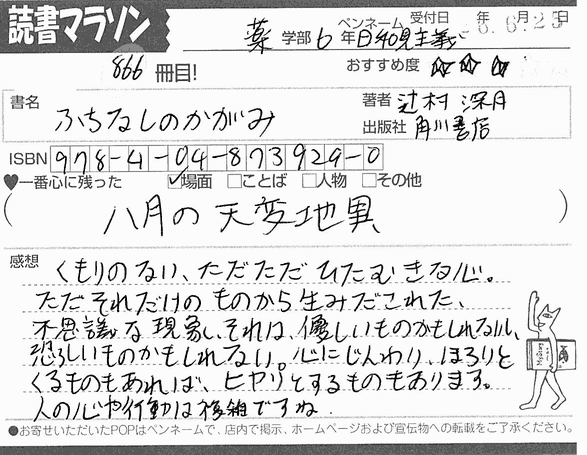 読書マラソン
薬 学部 6 年 ペンネーム 日和見主義 受付日 年 月 日
6.6.25
866 冊目!
おすすめ度 ☆☆☆
書名 ふちなしのかがみ
著者 辻村 深月
出版社 角川書店
ISBN 978-4-04-873929-0
♥一番心に残った ☑場面 □ことば □人物 □その他
(八月の天変地異)
感想
くもりのない、ただただ ひたむきな心。
ただそれだけのものから生みだされた、
不思議な現象。それは、優しいものかもしれないし、
恐ろしいものかもしれない。心にじんわり、ほろりと
くるものもあれば、ヒヤリとするものもあります。
人の心や行動は複雑ですね
●お寄せいただいたPOPはペンネームで、店内で掲示、ホームページおよび宣伝物への転載をご了承ください。